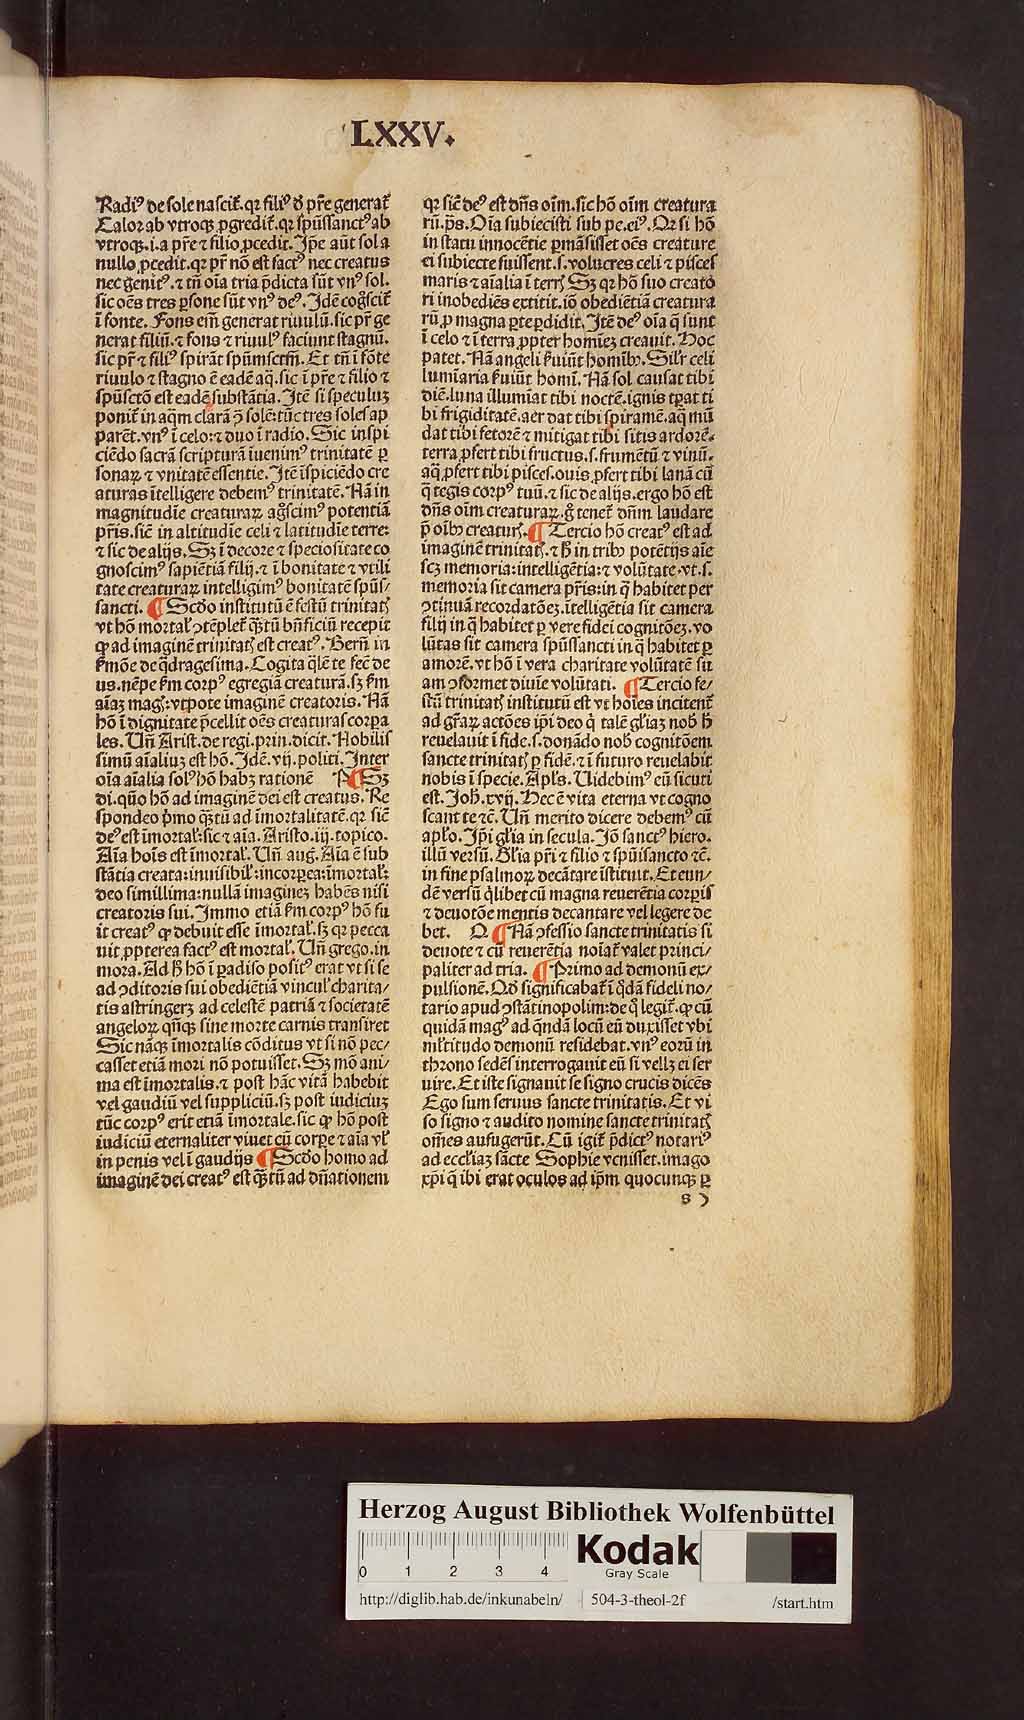 LXXV.
Radiꝰ de sole nascit̄. qꝛ filiꝰ d̄ pr̄e generat̄
Calor ab vtroqꝫ ꝓgredit̄. qꝛ sp̄ussanctꝰ ab
vtroqꝫ. i. a pr̄e ⁊ filio ꝓcedit. Ip̄e aūt sol a
nullo ꝓcedit. qꝛ pr̄ nō est factꝰ nec creatus
nec genitꝰ. ⁊ tn̄ oīa tria p̄dicta sūt vnꝰ sol.
sic oēs tres ꝑsone sūt vnꝰ deꝰ. Idē coḡscit̄
ī fonte. Fons em̄ generat riuulū. sic pr̄ ge
nerat filiū. ⁊ fons ⁊ riuulꝰ faciunt stagnū.
sic pr̄ ⁊ filiꝰ spirāt sp̄umsctm̄. Et tn̄ ī fōte
riuulo ⁊ stagno ē eadē aq̄. sic ī pr̄e ⁊ filio ⁊
sp̄usctō est eadē substātia. Itē si speculuꝫ
ponit̄ in aq̄m clarā ꝯ̄ solē: tūc tres soles ap
parēt. vnꝰ ī celo: ⁊ duo ī radio. Sic inspi
ciēdo sacrā scripturā iuenimꝰ trinitatē ꝑ
sonaꝝ ⁊ vnitatē essentie. Itē īspiciēdo cre
aturas ītelligere debemꝰ trinitatē. Nā in
magnitudīe creaturaꝝ aḡscimꝰ potentiā
pr̄is. siē in altitudīe celi ⁊ latitudīe terre:
⁊ sic de alijs. Sꝫ ī decore ⁊ speciositate co
gnoscimꝰ sapiētiā filij. ⁊ ī bonitate ⁊ vtili
tate creaturaꝝ intelligimꝰ bonitatē sp̄us/
sancti. ¶ Scd̄o institutū ē festū trinitatꝭ
vt hō mortal̄ ꝯtēplet̄ q̄ꝫtū bn̄ficiū recepit
ꝙ ad imaginē trinitatꝭ est creatꝰ. Bern̄ in
ẜmōe de q̄dragesima. Cogita q̄lē te fec̄ de
us. nēpe ẜm corpꝰ egregiā creaturā. sꝫ ẜm
aīaꝫ magꝭ: vtpote imaginē creatoris. Nā
hō ī dignitate p̄cellit oēs creaturas corꝑa
les. Un̄ Arist. de regi. prin. dicit. Nobilis
simū aīaliuꝫ est hō. Idē. vij. politi. Inter
oīa aīalia solꝰ hō habꝫ rationē P ¶ Sꝫ
di. quō hō ad imaginē dei est creatus. Re
spondeo p̄mo q̄ꝫtū ad īmortalitatē. qꝛ siē
deꝰ est īmortal̄: sic ⁊ aīa. Aristo. iij. topico.
Aīa hoīs est īmortal̄. Un̄ auḡ. Aīa ē sub
stātia creata: inuisibil̄: incorꝑea: īmortal̄:
deo simillima: nullā imagineꝫ habēs nisi
creatoris sui. Immo etiā ẜm corpꝰ hō fu
it creatꝰ ꝙ debuit esse īmortal̄. sꝫ qꝛ pecca
uit ꝓpterea factꝰ est mortal̄. Un̄ grego. in
mora. Ad ꝧ hō ī ꝑadiso positꝰ erat vt si se
ad ꝯditoris sui obediētiā vincul̓ charita/
tis astringerꝫ ad celestē patriā ⁊ societatē
angeloꝝ qn̄qꝫ sine morte carnis transiret
Sic nāqꝫ īmortalis cōditus vt si nō pec/
casset etiā mori nō potuisset. Sꝫ mō ani/
ma est īmortalis. ⁊ post hāc vitā habebit
vel gaudiū vel suppliciū. sꝫ post iudiciuꝫ
tūc corpꝰ erit etiā īmortale. sic ꝙ hō post
iudiciū eternaliter viuet cū corꝑe ⁊ aīa vl̓
in penis vel ī gaudijs ¶ Scd̄o homo ad
imaginē dei creatꝰ est q̄ꝫtū ad dn̄ationem
qꝛ siē deꝰ est dn̄s oīm. sic hō oīm creatura
rū. p̄s. Oīa subiecisti sub pe. eiꝰ. Qꝛ si hō
in statu innocētie ꝑmāsisset oēs creature
ei subiecte fuissent. s. volucres celi ⁊ pisces
maris ⁊ aīalia ī terrꝭ Sꝫ qꝛ hō suo creato
ri inobediēs extitit. iō obediētiā creatura
rū ꝓ magna ꝑte ꝑdidit. Itē deꝰ oīa q̄ sunt
ī celo ⁊ ī terra ꝓpter homīeꝫ creauit. Hoc
patet. Nā angeli ẜuiūt homībꝰ. Silr̄ celi
lumīaria ẜuiūt homī. Nā sol causat tibi
diē. luna illumīat tibi noctē. ignis tꝑat ti
bi frigiditatē. aer dat tibi spiramē. aq̄ mū
dat tibi fetorē ⁊ mitigat tibi sitis ardorē.
terra ꝓfert tibi fructus. s. frumētū ⁊ vinū.
aq̄ ꝓfert tibi pisces. ouis ꝓfert tibi lanā cū
q̄ tegis corpꝰ tuū. ⁊ sic de alijs. ergo hō est
dn̄s oīm creaturaꝝ. g̊ tenet̄ dn̄m laudare
p̄ oībꝰ creaturꝭ. ¶ Tercio hō creatꝰ est ad
imaginē trinitatꝭ. ⁊ ꝧ in tribꝰ potētijs aīe
scꝫ memoria: intelligētia: ⁊ volūtate. vt. s.
memoria sit camera pr̄is: in q̄ habitet per
ꝯtinuā recordatōeꝫ. ītelligētia sit camera
filij in q̄ habitet ꝑ vere fidei cognitōeꝫ. vo
lūtas sit camera sp̄ussancti in q̄ habitet ꝑ
amorē. vt hō ī vera charitate volūtatē su
am ꝯformet diuīe volūtati. ¶ Tercio fe/
stū trinitatꝭ institutū est vt hoīes incitent̄
ad gr̄aꝝ actōes ip̄i deo q̄ talē gl̓iaꝫ nob̄ ꝧ
reuelauit ī fide. s. donādo nob̄ cognitōem
sancte trinitatꝭ ꝑ fidē. ⁊ ī futuro reuelabit
nobis ī specie. Apl̓s. Uidebimꝰ eū sicuti
est. Joh̄. xvij. Hec ē vita eterna vt cogno
scant te ⁊c̄. Un̄ merito dicere debemꝰ cū
apl̓o. Ip̄i gl̓ia in secula. Iō sanctꝰ hiero.
illū versū. Gl̓ia pr̄i ⁊ filio ⁊ sp̄uisancto ⁊c̄.
in fine psalmoꝝ decātare īstituit. Et eun/
dē versū q̄libet cū magna reuerētia corꝑis
⁊ deuotōe mentis decantare vel legere de
bet. Q ¶ Nā ꝯfessio sancte trinitatis si
deuote ⁊ cū reuerētia noīat̄ valet princi/
paliter ad tria. ¶ Primo ad demonū ex/
pulsionē. Qd̄ significabat̄ ī q̄dā fideli no/
tario apud ꝯstātinopolim: de q̄ legit̄. ꝙ cū
quidā magꝰ ad q̄ndā locū eū duxisset vbi
ml̓titudo demonū residebat. vnꝰ eorū in
throno sedēs interrogauit eū si vellꝫ ei ser
uire. Et iste signauit se signo crucis dicēs
Ego sum seruus sancte trinitatis. Et vi
so signo ⁊ audito nomine sancte trinitatꝭ
om̄es aufugerūt. Cū igit̄ p̄dictꝰ notariꝰ
ad eccl̓iaꝫ sācte Sophie venisset. imago
xp̄i q̄ ibi erat oculos ad ip̄m quocunqꝫ ꝑ
s )
Herzog August Bibliothek Wolfenbüttel
0 1 2 3 4
Kodak
Gray Scale
http://diglib.hab.de/inkunabeln/ 504-3-theol-2f /start.htm